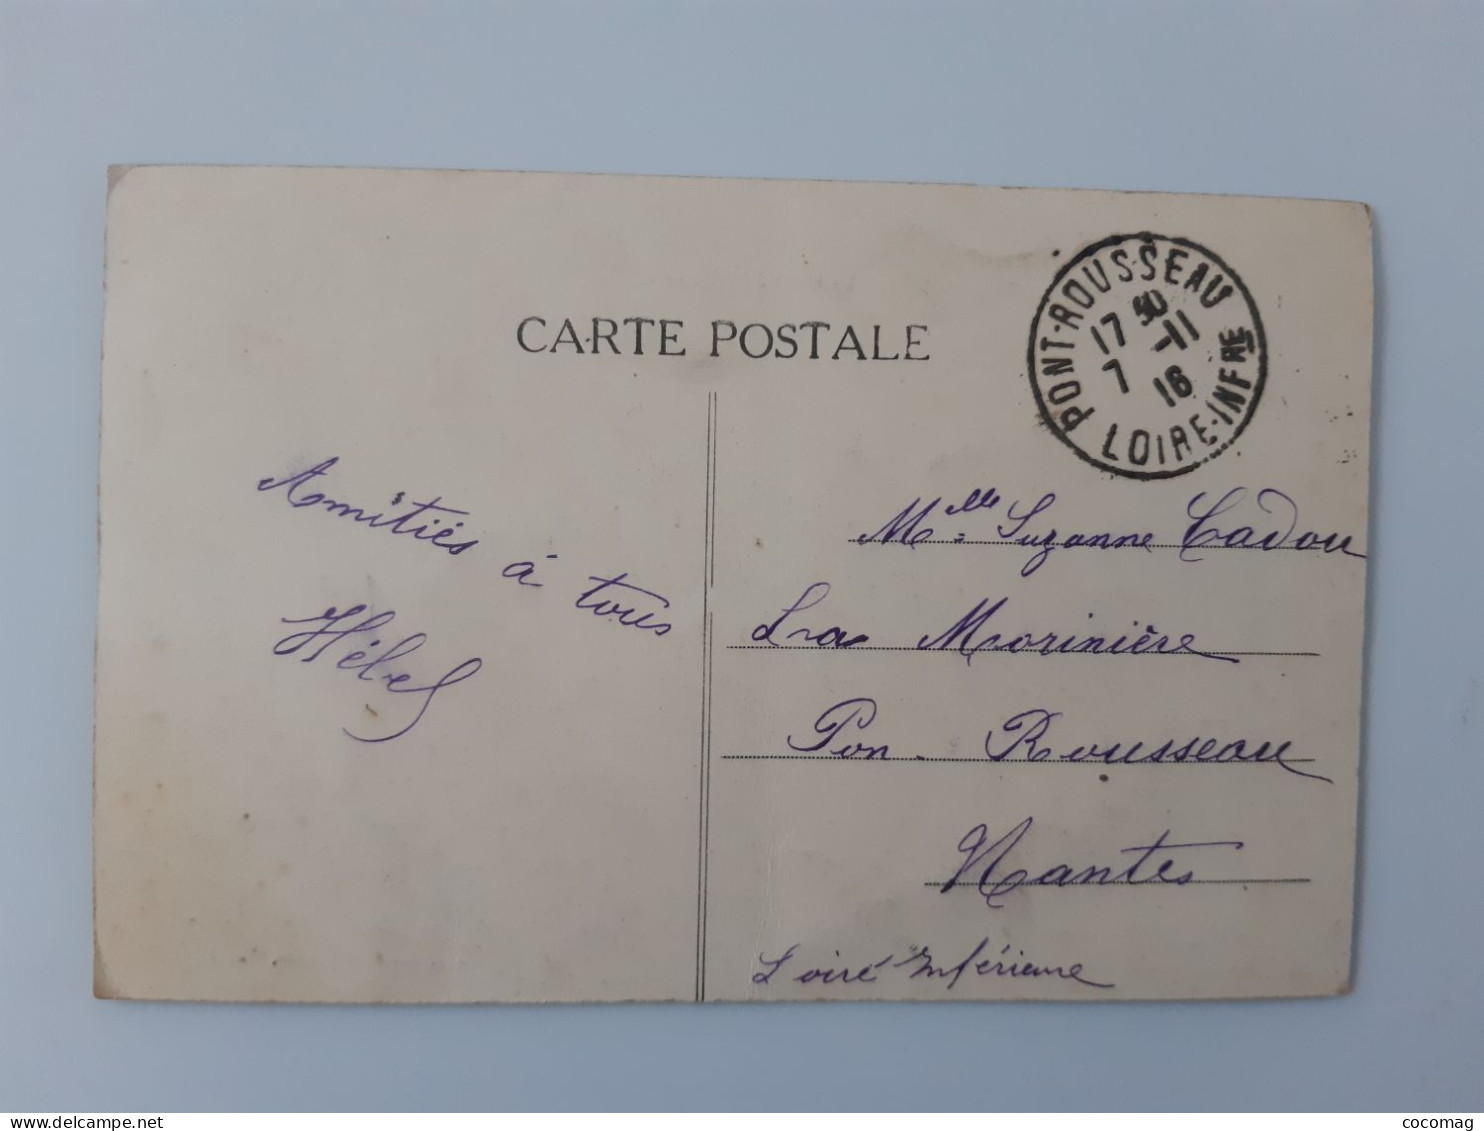 CARTE POSTALE
PONT-ROUSSEAU
17 30
7 -11
16
LOIRE-INFRE
Amitiés à tous
Hébel
Mlle Suzanne Cadou
La Morinière
Pon. Rousseau
Nantes
Loiré Inférieure
delcampe.net
cocomag